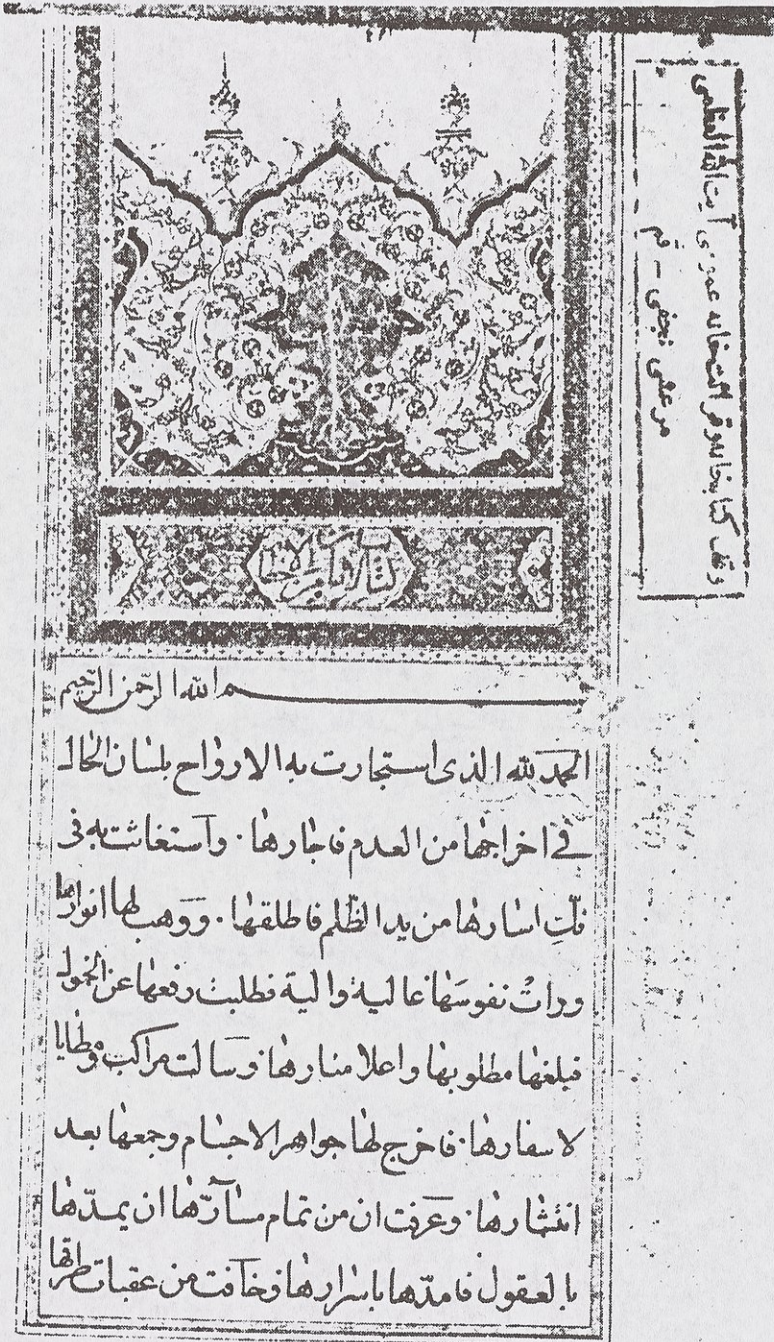 وقف كتابخانه و قرائتخانه عمومى آيت الله العظمى
مرعشى نجفى - قم
بسم الله الرحمن الرحيم
الحمد لله الذى استجارت به الارواح بلسان الحال
فى اخراجها من العدم فاجارها. واستغاثت به فى
فك اسارها من يد الظلم فاطلقها. ووهب لها انوارها
ورات نفوسَها عالية والية فطلبت رفعها عن الخمول
فبلغها مطلوبها واعلا منارها. وسالت مراكب ومطايا
لاسفارها. فاخرج لها جواهر الاجسام وجمعها بعد
انتثارها. وعرفت ان من تمام مسارّها ان يمدّها
بالعقول فامدّها باسرارها. وخافت من عقبات طرقها